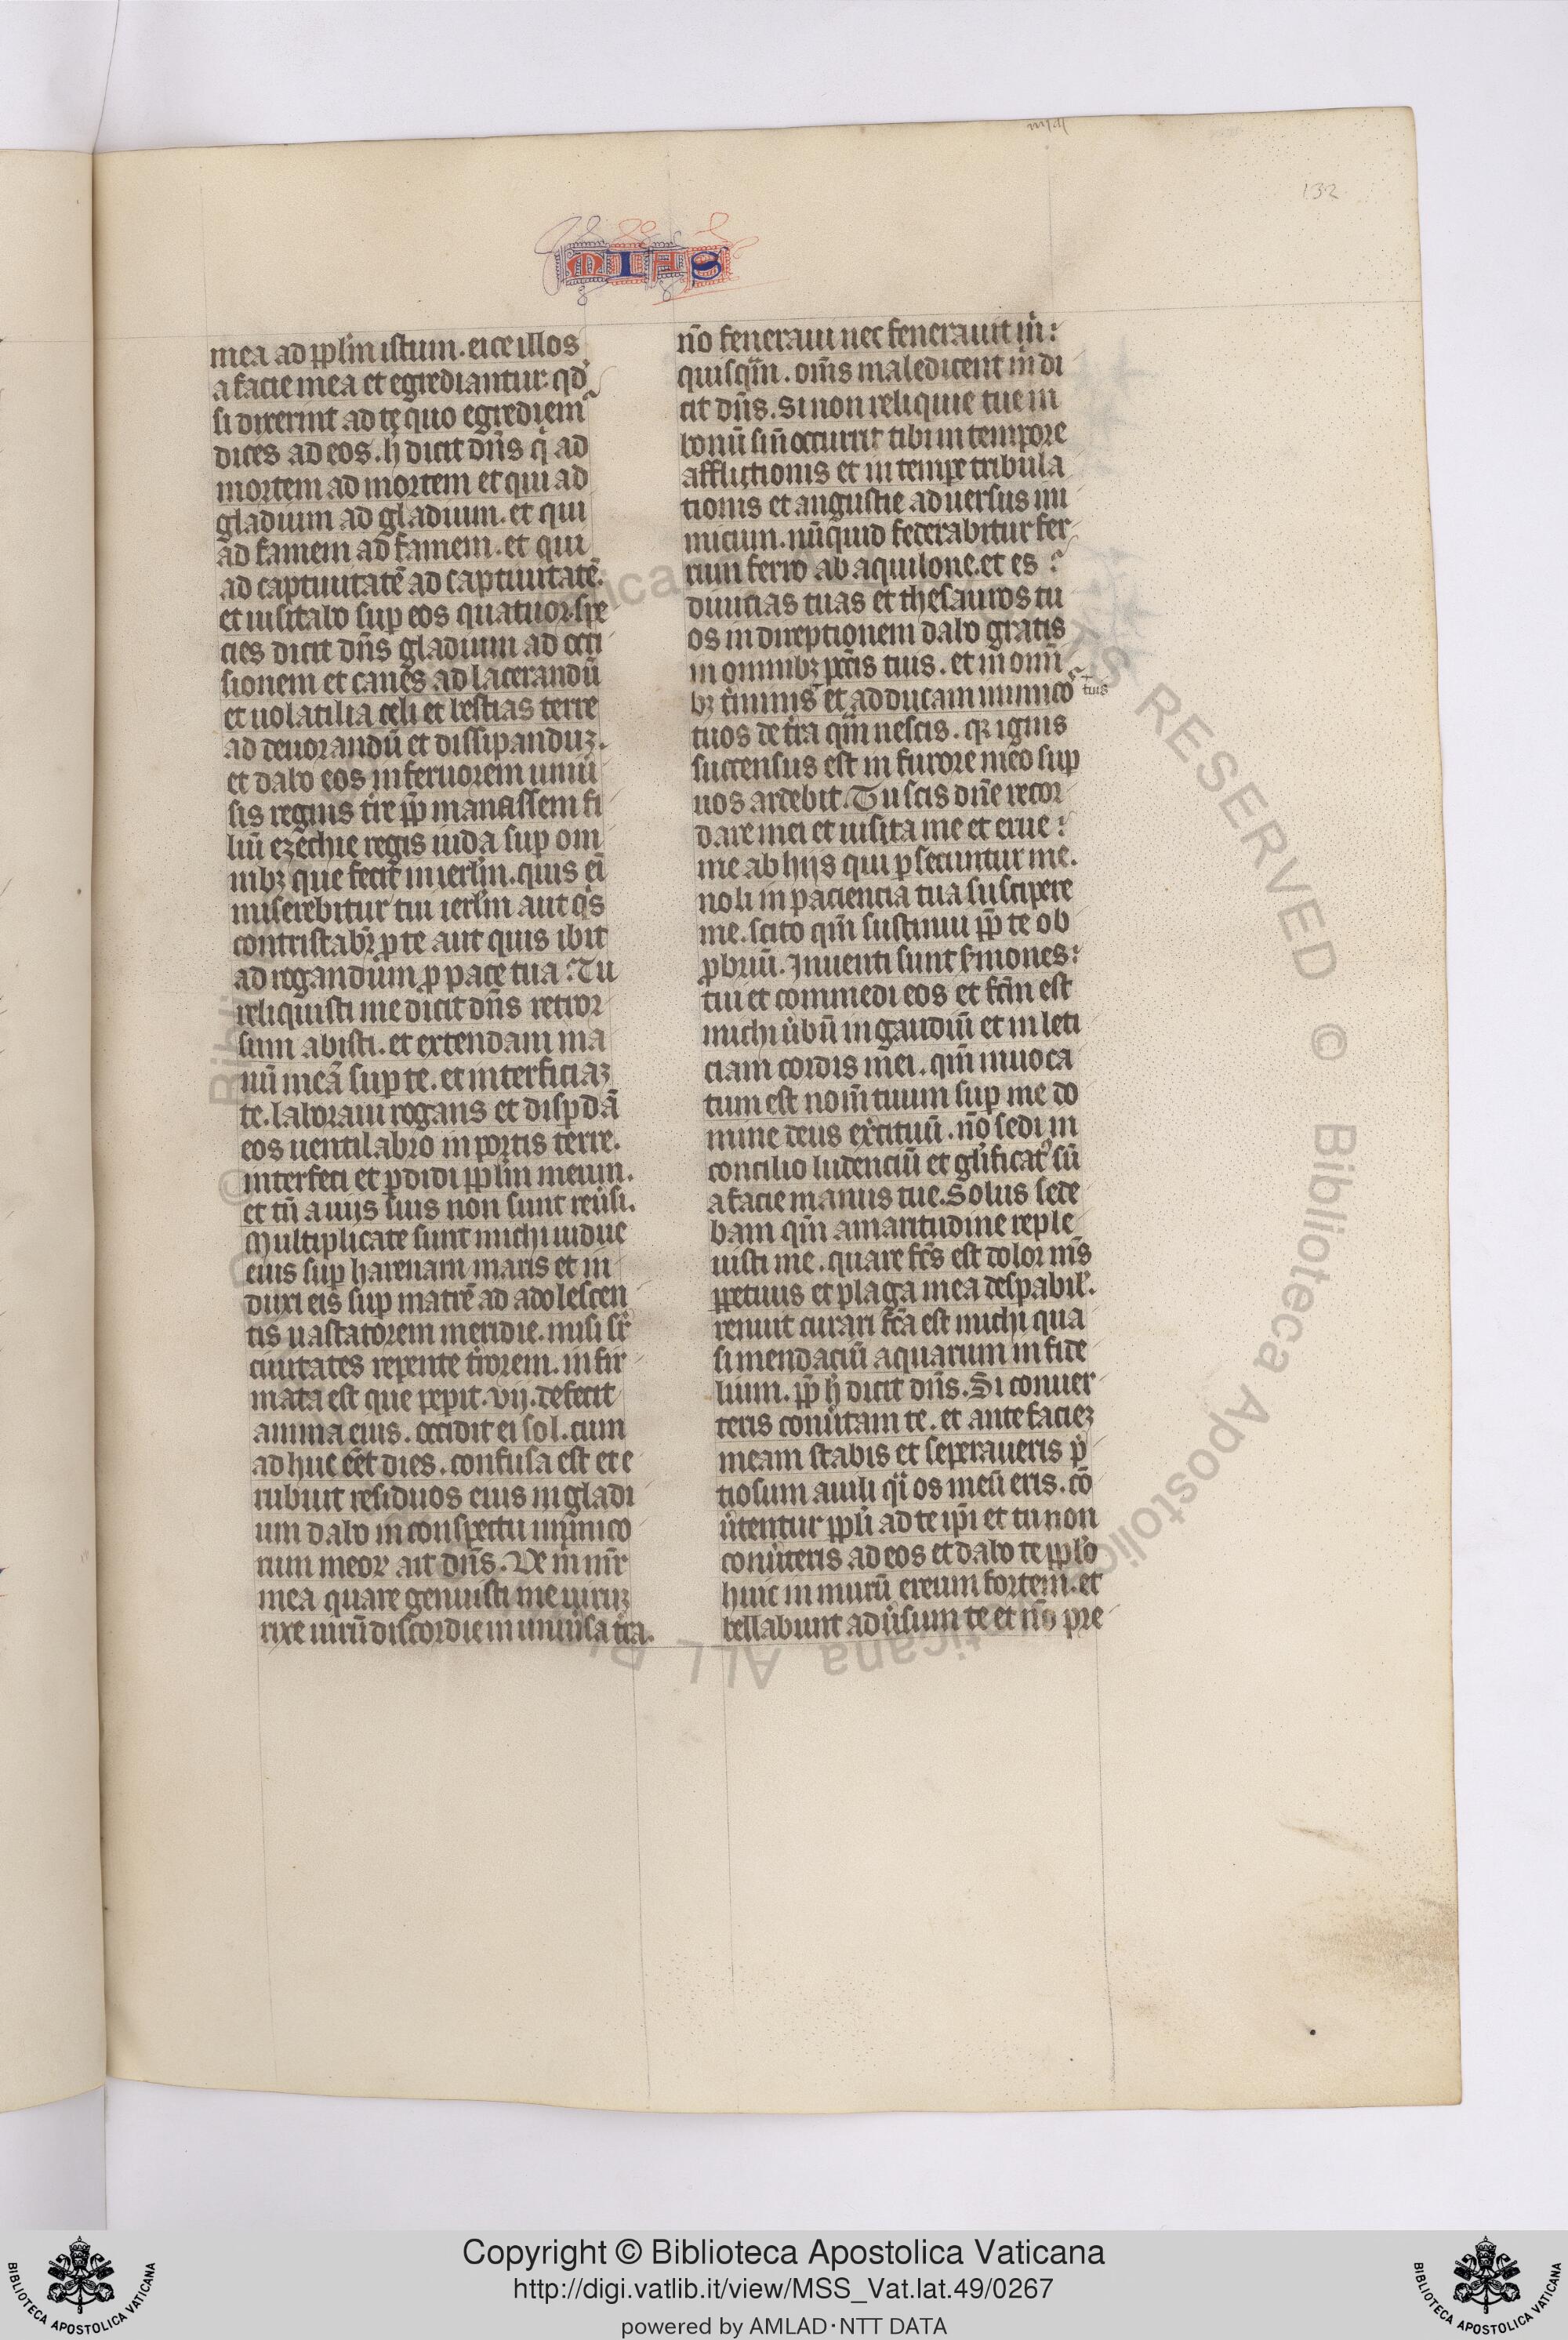 132
MIAS
mea ad pplm̄ istum. eice illos
a facie mea et egrediantur. qd'
si dixerint ad te quo egrediem̄
dices ad eos. h̄ dicit dn̄s q̄ ad
mortem ad mortem et qui ad
gladium ad gladium. et qui
ad famem ad famem. et qui
ad captiuitatē ad captiuitatē.
et uisitabo sup eos quatuor spe
cies dicit dn̄s gladium ad occi
sionem et canes ad lacerandū
et uolatilia celi et bestias terre
ad deuorandū et dissipanduz.
et dabo eos in feruorem uniū
sis regnis tr̄e pp̄ manassem fi
liū ezechie regis iuda sup om
nibꝫ que fecit in ierlm̄. quis eī
miserebitur tui ierlm̄ aut q̄s
contristabr̄ p te aut quis ibit
ad rogandum p pace tua. Tu
reliquisti me dicit dn̄s retror
sum abisti. et extendam ma
nū meā sup te. et interficiaz
te. laboraui rogans et dispdā
eos uentilabro in portis terre.
interfeci et pdidi pplm̄ meum.
et tn̄ a uijs suis non sunt reūsi.
Multiplicate sunt michi uidue
eius sup harenam maris et in
duxi eis sup matrē ad adolescen
tis uastatorem meridie. misi sr̄
ciuitates repente t̄rorem. infir
mata est que pepit. vij. defecit
anima eius. occidit ei sol. cum
adhuc eēt dies. confusa est et e
rubuit residuos eius in gladi
um dabo in conspectu inimico
rum meoꝝ ait dn̄s. Ve m̄ mr̄
mea quare genuisti me uiruz
rixe uirū discordie in uniūsa tr̄a.
nō feneraui nec fenerauit m̄
quisq̄m. om̄s maledicent m̄ di
cit dn̄s. Si non reliquie tue in
bonū si nō occurrit tibi in tempore
afflictionis et in tempe tribula
tionis et angustie aduersus ini
micum. nūquid federabitur fer
rum ferro ab aquilone. et es
diuicias tuas et thesauros tu
os in direptionem dabo gratis
in omnibꝫ pctīs tuis. et in omī
bꝫ t̄minis et adducam inimico
tuis
tuos de tr̄a qm̄ nescis. qꝛ ignis
succensus est in furore meo sup
uos ardebit. Tu scis dn̄e recor
dare mei et uisita me et erue
me ab hijs qui psecuntur me.
noli in paciencia tua suscipere
me. scito qm̄ sustinui pp̄ te ob
pbriū. Inuenti sunt s̄mones
tui et commedi eos et fc̄m est
michi ūbū in gaudiū et in leti
ciam cordis mei. qm̄ inuoca
tum est nom̄ tuum sup me do
mine deus ex̄cituū. nō sedi in
concilio ludenciū et gl̄ificat' sū
a facie manus tue. Solus sede
bam qm̄ amaritudine reple
uisti me. quare fc̄s est dolor m̄s
ppetuus et plaga mea despabil'.
renuit curari fc̄a est michi qua
si mendaciū aquarum infide
lium. pp̄ h̄ dicit dn̄s. Si conuer
teris conūtam te. et ante faciez
meam stabis et seperaueris p̄
tiosum a uili q̄i os meū eris. cō
ūtentur ppl'i ad te ipī et tu non
conūteris ad eos et dabo te ppl'o
huic in murū ereum fortem. et
bellabunt adūsum te et nō pre
© Biblioteca Apostolica Vaticana ALL RIGHTS RESERVED
Copyright © Biblioteca Apostolica Vaticana
http://digi.vatlib.it/view/MSS_Vat.lat.49/0267
powered by AMLAD·NTT DATA
BIBLIOTECA APOSTOLICA VATICANA
BIBLIOTECA APOSTOLICA VATICANA